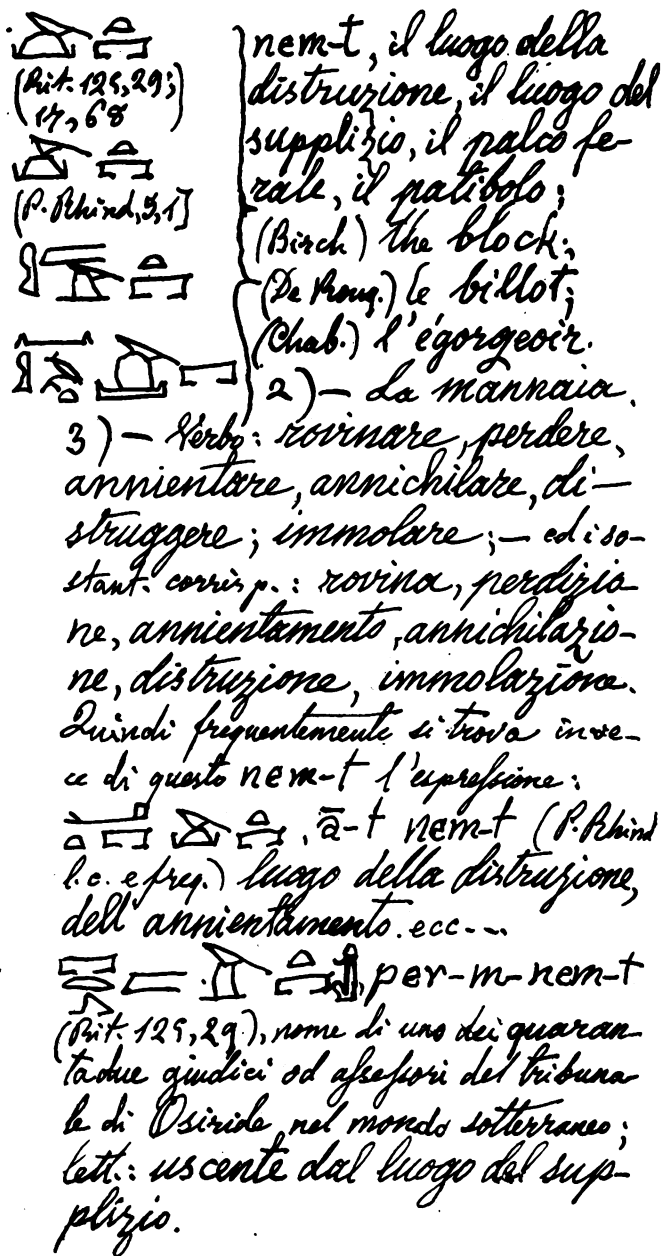 (Rit. 125, 29;
17, 68)
(P. Rhind, 9, 1]
nem-t, il luogo della
distruzione, il luogo del
supplizio, il palco fe-
rale, il patibolo;
(Birch) the block;
(De Roug.) le billot;
(Chab.) l'égorgeoir.
2) — La mannaia.
3) — Verbo: rovinare, perdere,
annientare, annichilare, di-
struggere; immolare; — ed i so-
stant. corrisp.: rovina, perdizio
ne, annientamento, annichilazio-
ne, distruzione, immolazione.
Quindi frequentemente si trova inve-
ce di questo nem-t l'espressione:
, ā-t nem-t (P. Rhind
l. c. e freq.) luogo della distruzione,
dell'annientamento. ecc...
per-m-nem-t
(Rit. 125, 29), nome di uno dei quaran
tadue giudici od assessori del tribuna
le di Osiride nel mondo sotterraneo;
lett.: uscente dal luogo del sup-
plizio.